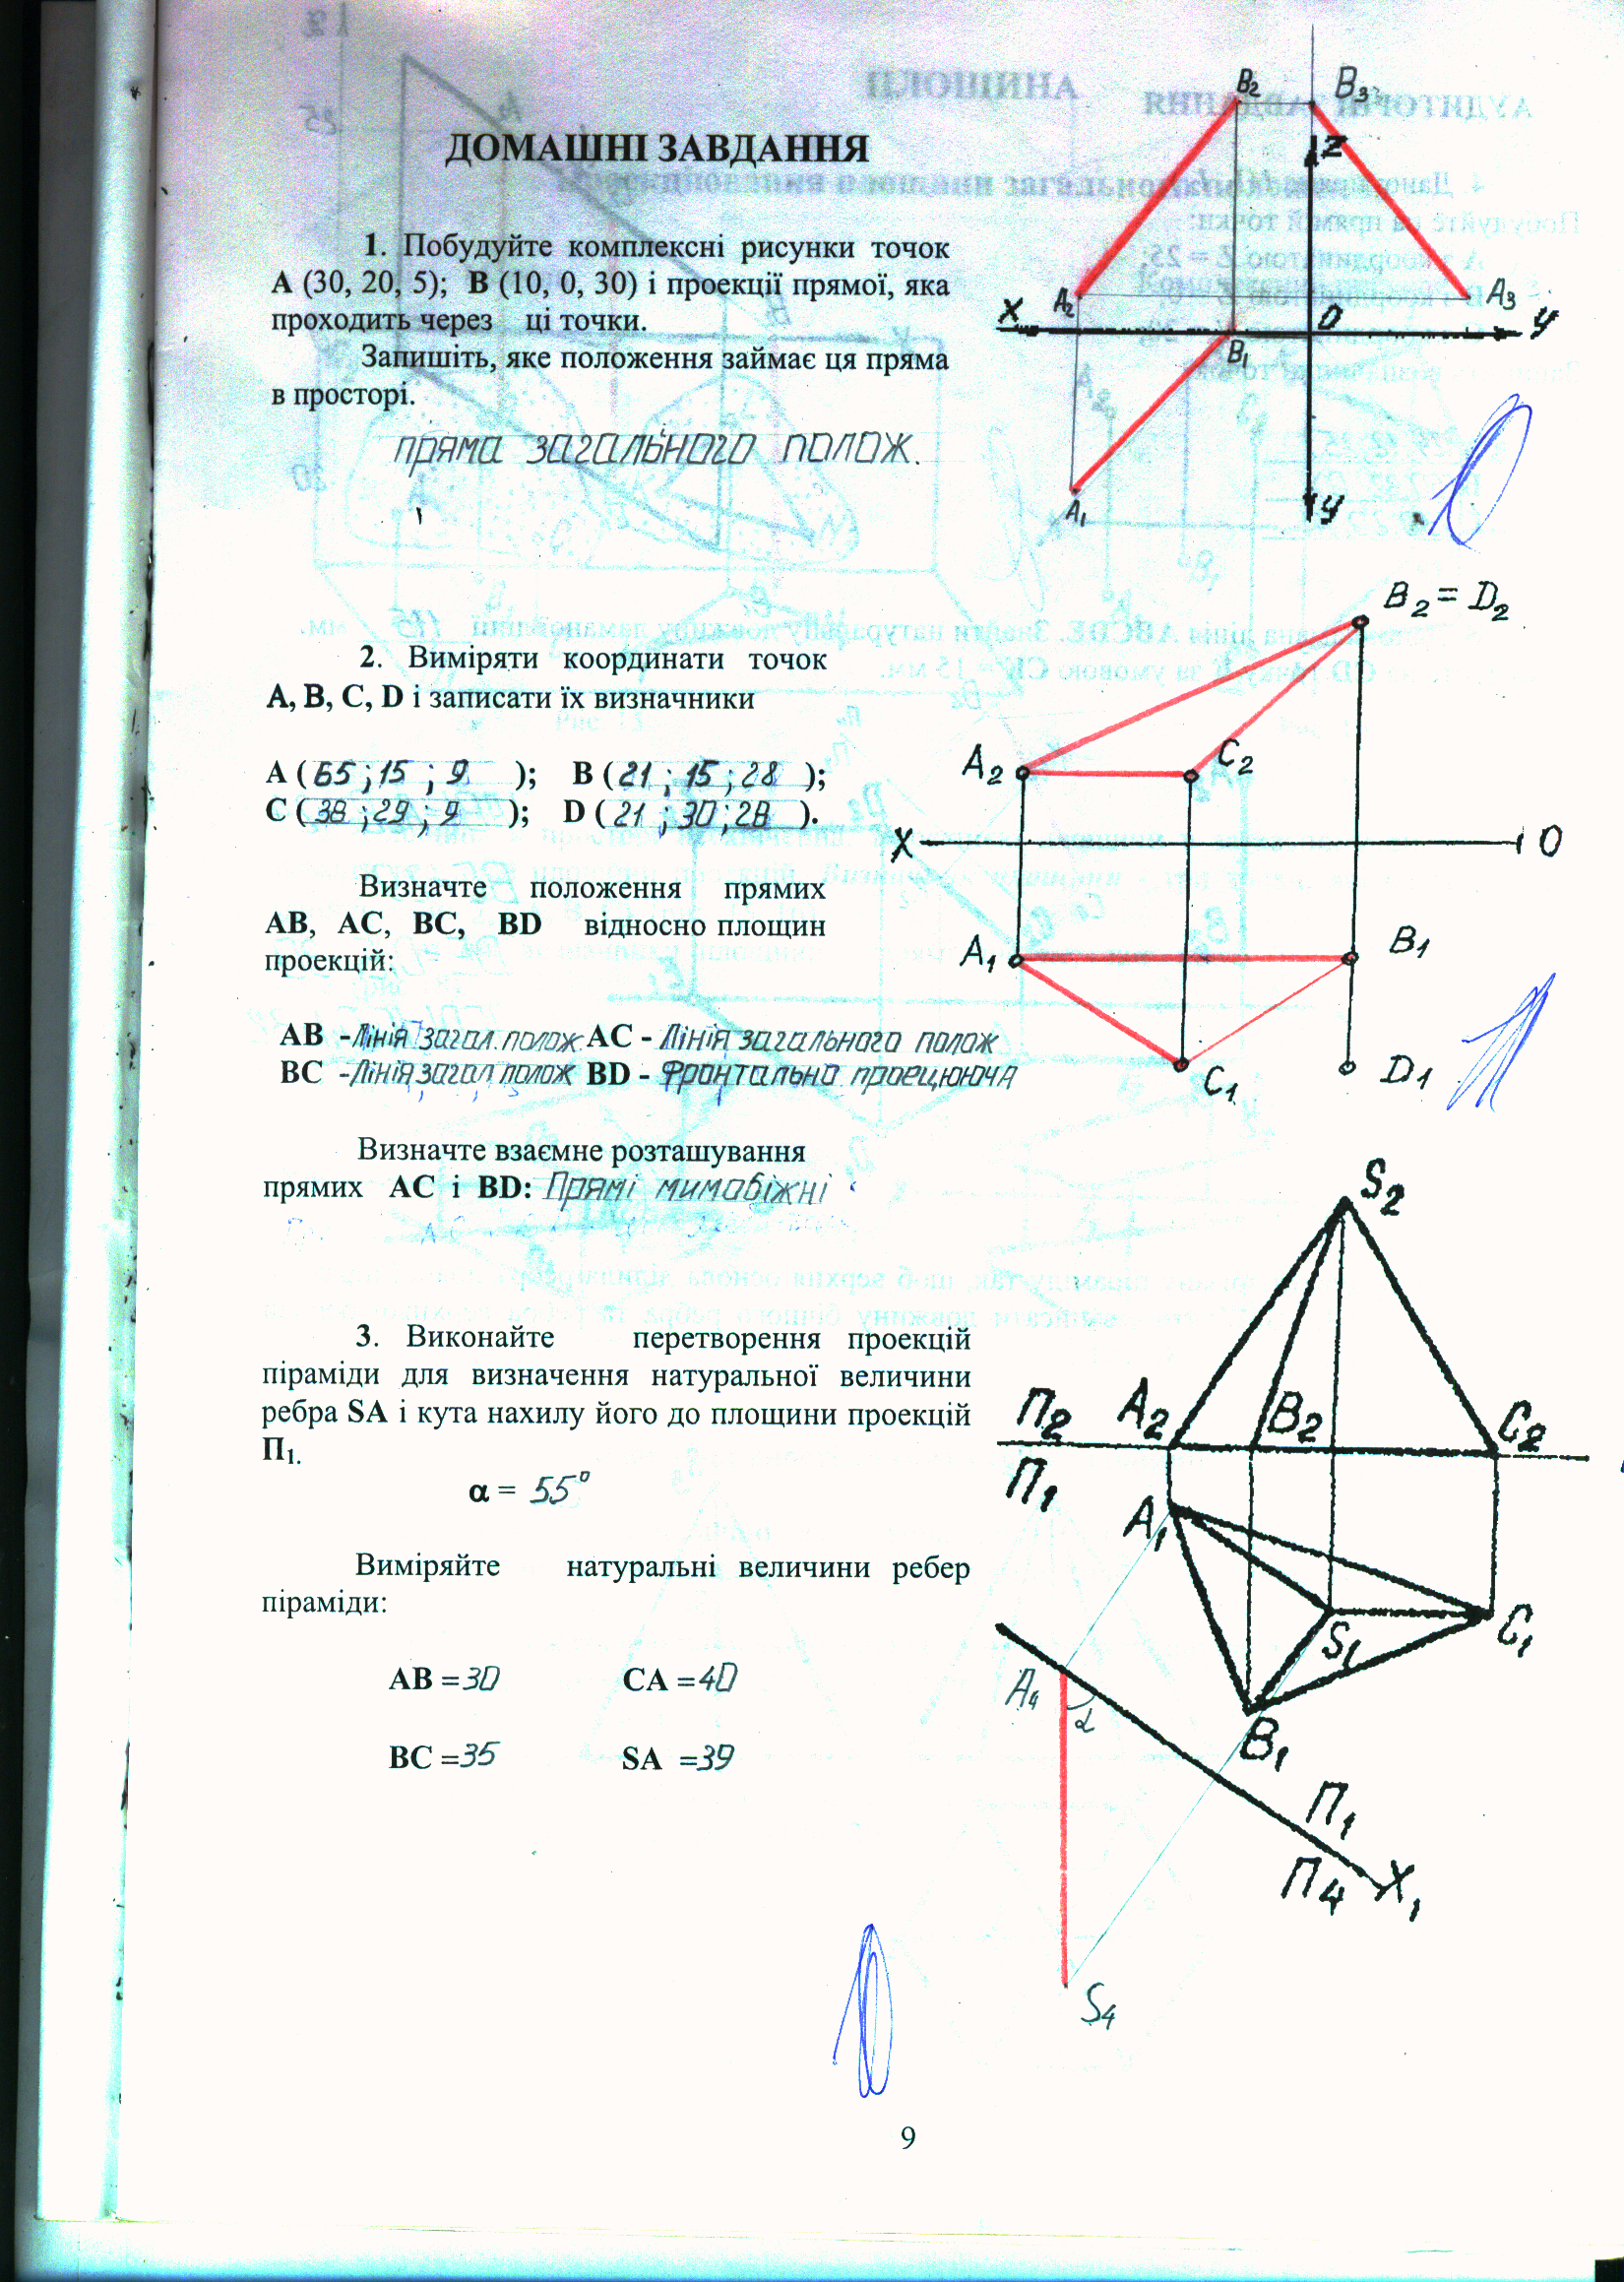 ДОМАШНІ ЗАВДАННЯ
1. Побудуйте комплексні рисунки точок
A (30, 20, 5); B (10, 0, 30) і проекції прямої, яка
проходить через ці точки.
Запишіть, яке положення займає ця пряма
в просторі.
пряма загального полож.
B2 B3
Z
A2 A3
X O У
B1
A1 У
2. Виміряти координати точок
A, B, C, D і записати їх визначники
A ( 65 ; 15 ; 9 ); B ( 21 ; 15 ; 28 );
C ( 38 ; 29 ; 9 ); D ( 21 ; 30 ; 28 ).
Визначте положення прямих
AB, AC, BC, BD відносно площин
проекцій:
AB - Лінія загал. полож AC - Лінія загального полож
BC - Лінія загал полож BD - фронтально проецююча
B2 = D2
A2 C2
X O
A1 B1
C1 D1
Визначте взаємне розташування
прямих AC і BD: Прямі мимобіжні
3. Виконайте перетворення проекцій
піраміди для визначення натуральної величини
ребра SA і кута нахилу його до площини проекцій
П1.
α = 55°
Виміряйте натуральні величини ребер
піраміди:
AB = 30 CA = 40
BC = 35 SA = 39
S2
П2 A2 B2 C2
П1 A1
S1 C1
A4 α B1
П1
П4 X1
S4
9